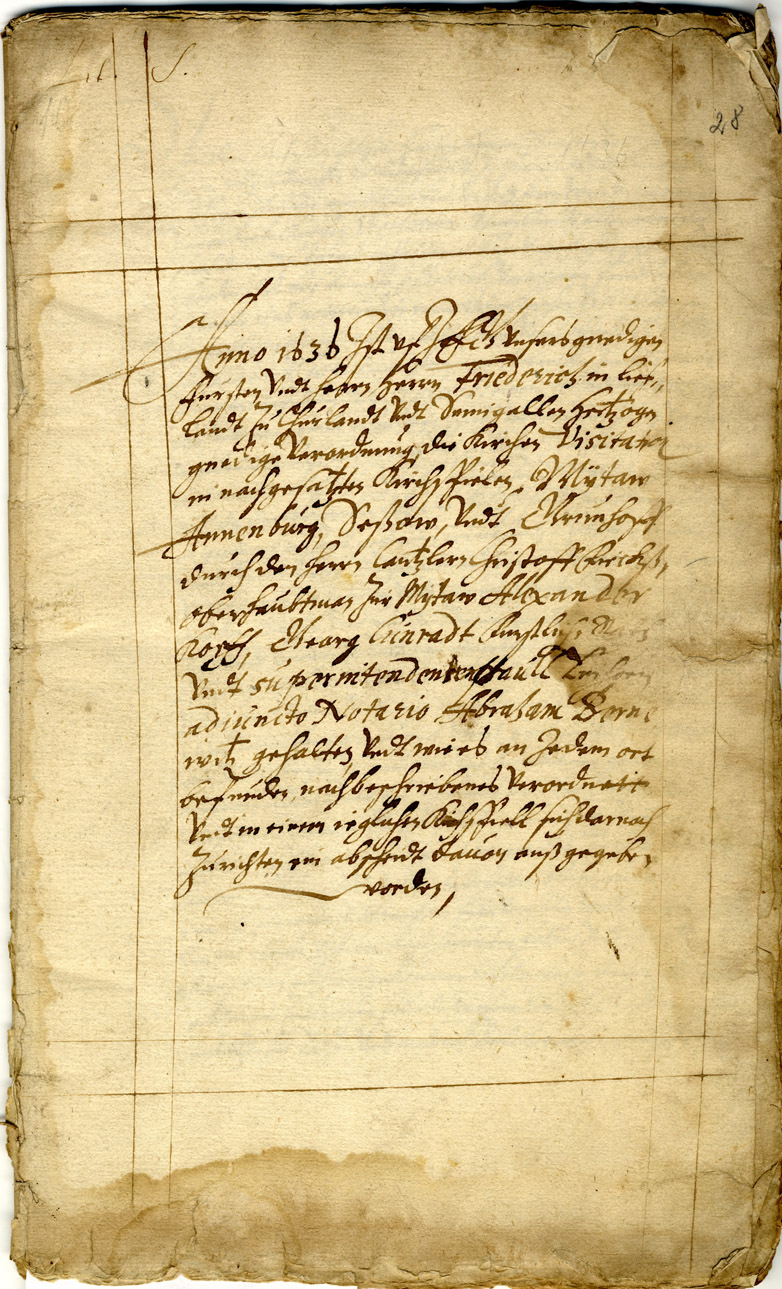 Lit. S.
28
1636
Anno 1636 Ist vf I. F. G. Unsers gnedigen
Fürsten Vndt Herrn Herrn Friederich in Lief,
landt zu Churlandt Vndt Semigallen Hertzogen
gnedige Verordnung, die Kirchen Visitation
in nachgesatzten Kirchspielen, Mÿtaw
Annenburg, Seßaw, Vndt Grünhoff
durch den Herrn Cantzlern Christoff Fircks,
Oberhaubtman zur Mÿtaw Alexander
Korff, Georg Cünradt Fürstlichen
Vndt Superintendenten Paull
adiuncto Notario Abraham Berne
witz gehalten, Vndt wie es an Jedem ort
befunden, nachbeschriebenes Verordnett
Vndt in einem ieglichen Kirchspiell sich darnach
Zurichten ein abscheidt dauon auß gegeben
worden,